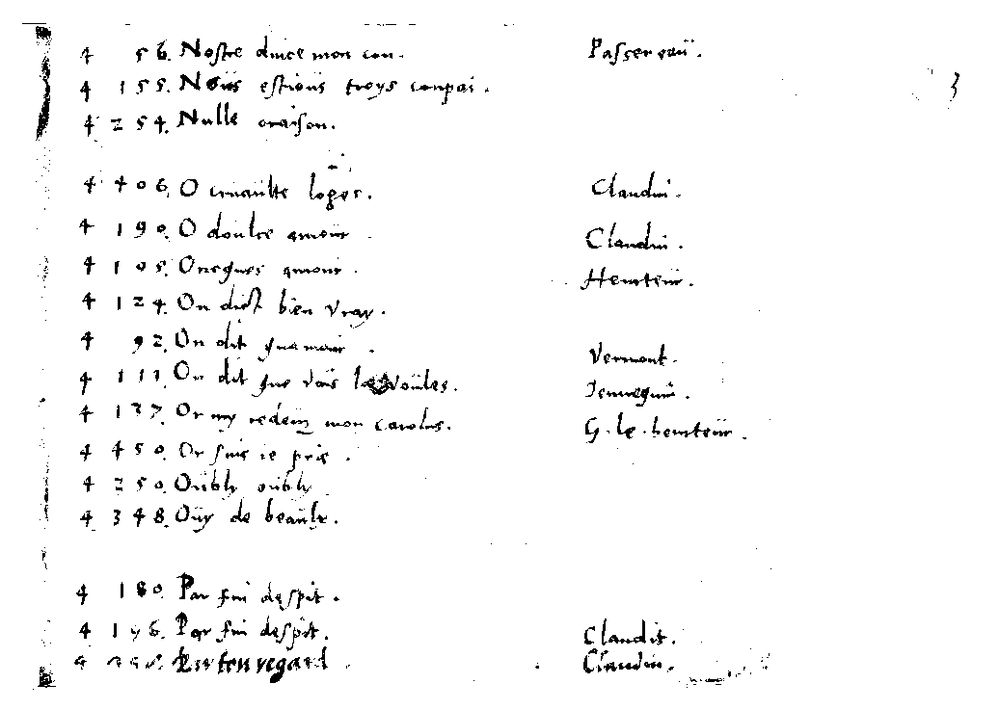 4 56. Nostre dince mon con. Passereau.
4 155. Nous estions troys conpai. 3
4 254. Nulle oraison.
4 406. O cruaulte logee. Claudin.
4 190. O doulce amour Claudin.
4 105. Oncques amour. Heurteur.
4 124. On dict bien vray.
4 92. On dit quamour. Vermont.
4 111. On dit que vous voules. Jennequin.
4 137. Or my rendez mon carolus. G. le heurteur.
4 450. Or suis ie pris.
4 250. Oubly oubly
4 348. Ouy de beaulte.
4 180. Par fin despit.
4 196. Par fin despit. Claudit.
4 Par ton regard. Claudin.